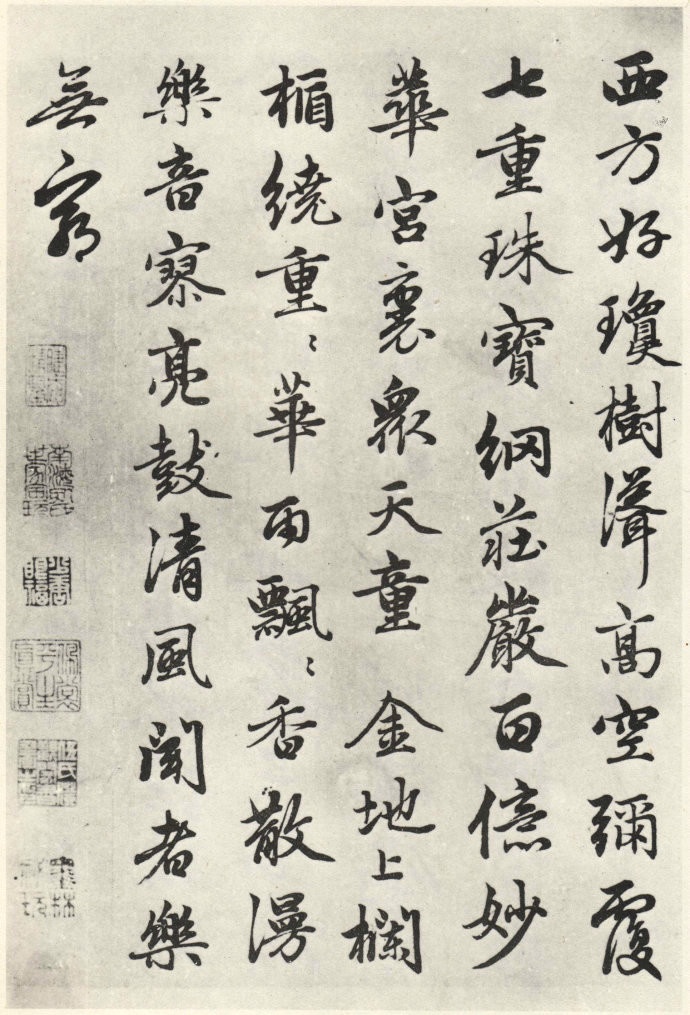 西方好瓊樹聳高空彌覆
七重珠寶網莊嚴百億妙
華宮裏眾天童金地上欄
楯繞重〻華雨飄〻香散漫
樂音寥亮鼓清風聞者樂
無窮
墨林祕玩